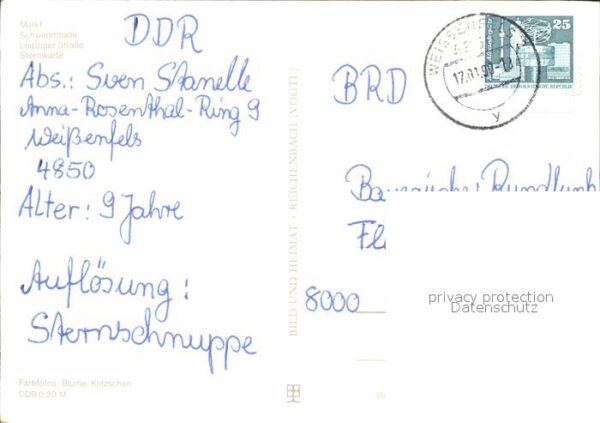 Markt
Schwimmhalle
Leipziger Straße
Sternwarte
DDR
Abs.: Sven Stanelle
Anna-Rosenthal-Ring 9
Weißenfels
4850
Alter: 9 Jahre
Auflösung:
Sternschnuppe
Farbfotos: Blume, Kötzschen
DDR 0,20 M
BILD UND HEIMAT · REICHENBACH (VOGTL)
25
4850
17.01.90
y
BRD
Bayerischer Rundfunk
8000
privacy protection
Datenschutz